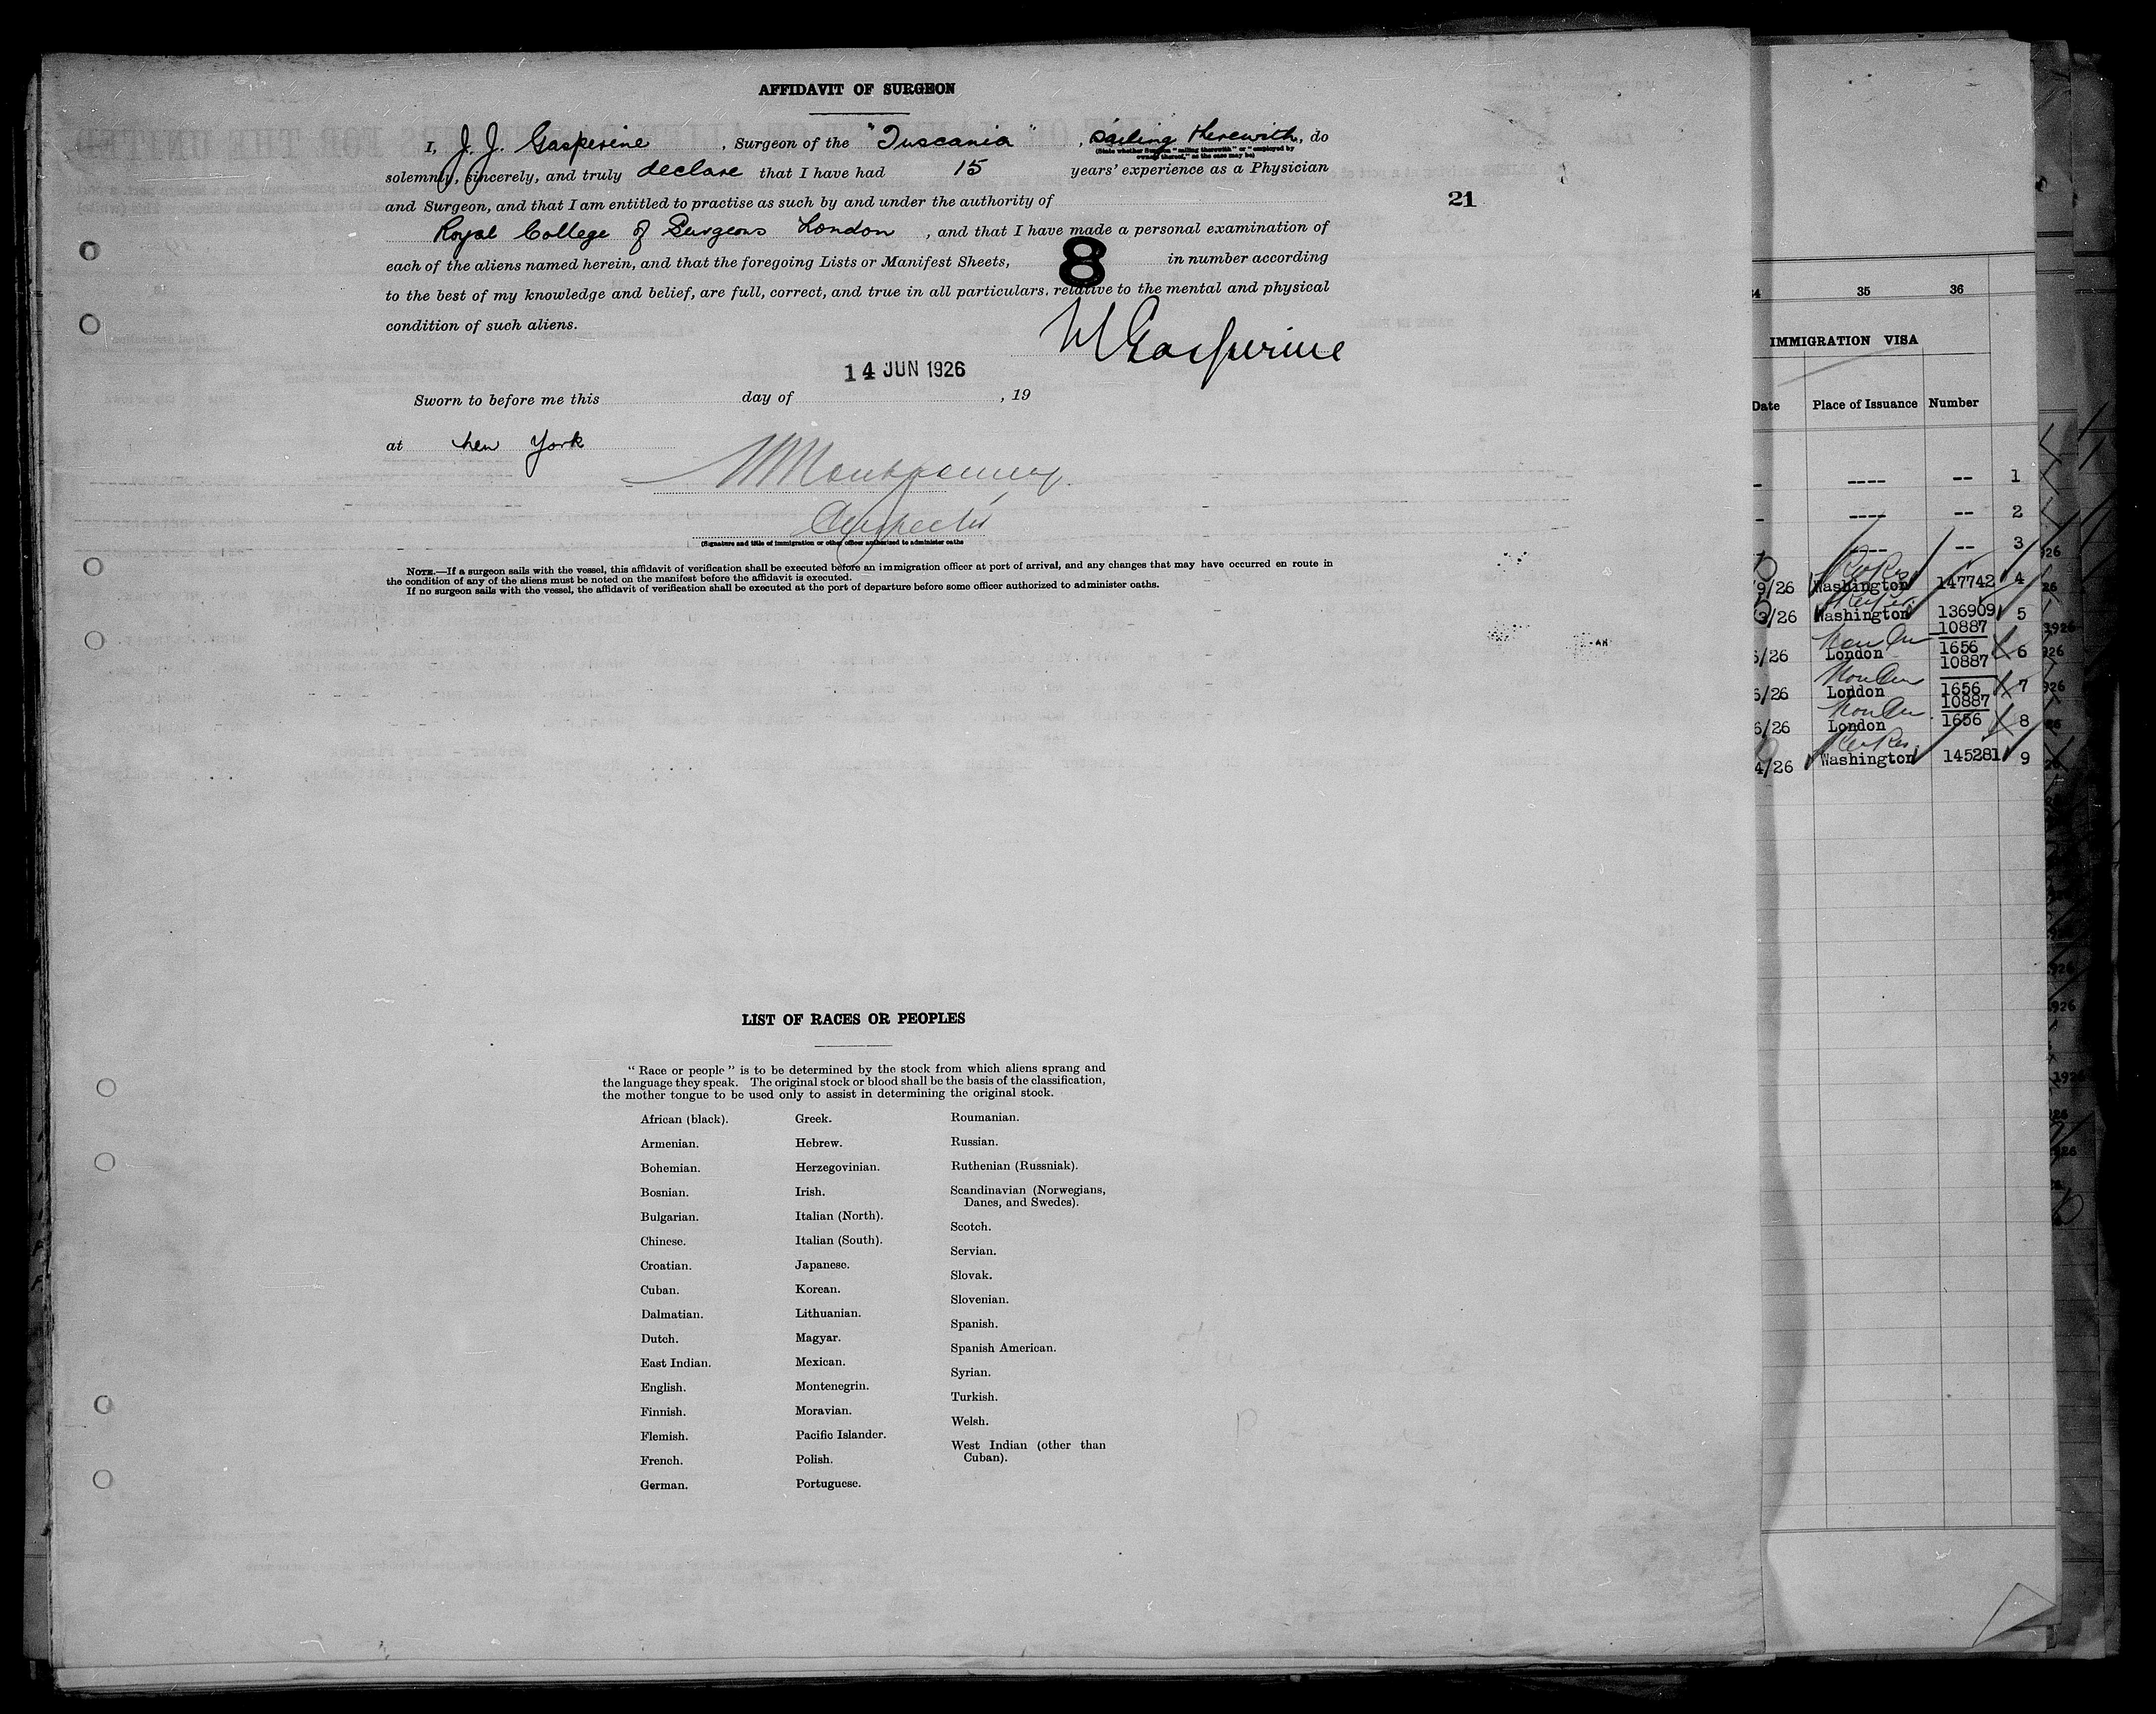 AFFIDAVIT OF SURGEON
I, J. J. Gasperine , Surgeon of the "Tuscania" , sailing therewith, do
(State whether Surgeon "sailing therewith" or "employed by
owners thereof," as the case may be)
solemnly, sincerely, and truly declare that I have had 15 years' experience as a Physician
and Surgeon, and that I am entitled to practise as such by and under the authority of
21
Royal College of Surgeons London , and that I have made a personal examination of
each of the aliens named herein, and that the foregoing Lists or Manifest Sheets, 8 in number according
to the best of my knowledge and belief, are full, correct, and true in all particulars, relative to the mental and physical
condition of such aliens.
Gasperine
14 JUN 1926
Sworn to before me this day of , 19
at New York
Montgomery
Inspector
(Signature and title of immigration or other officer authorized to administer oaths
NOTE.—If a surgeon sails with the vessel, this affidavit of verification shall be executed before an immigration officer at port of arrival, and any changes that may have occurred en route in
the condition of any of the aliens must be noted on the manifest before the affidavit is executed.
If no surgeon sails with the vessel, the affidavit of verification shall be executed at the port of departure before some officer authorized to administer oaths.
LIST OF RACES OR PEOPLES
"Race or people" is to be determined by the stock from which aliens sprang and
the language they speak. The original stock or blood shall be the basis of the classification,
the mother tongue to be used only to assist in determining the original stock.
African (black).
Armenian.
Bohemian.
Bosnian.
Bulgarian.
Chinese.
Croatian.
Cuban.
Dalmatian.
Dutch.
East Indian.
English.
Finnish.
Flemish.
French.
German.
Greek.
Hebrew.
Herzegovinian.
Irish.
Italian (North).
Italian (South).
Japanese.
Korean.
Lithuanian.
Magyar.
Mexican.
Montenegrin.
Moravian.
Pacific Islander.
Polish.
Portuguese.
Roumanian.
Russian.
Ruthenian (Russniak).
Scandinavian (Norwegians,
Danes, and Swedes).
Scotch.
Servian.
Slovak.
Slovenian.
Spanish.
Spanish American.
Syrian.
Turkish.
Welsh.
West Indian (other than
Cuban).
34 35 36
IMMIGRATION VISA
Date Place of Issuance Number
---- -- 1
---- -- 2
---- -- 3
9/26 Washington 147742 4
3/26 Washington 136909 5
10887
5/26 London 1656 6
10887
5/26 London 1656 7
10887
6/26 London 1656 8
4/26 Washington 145281 9